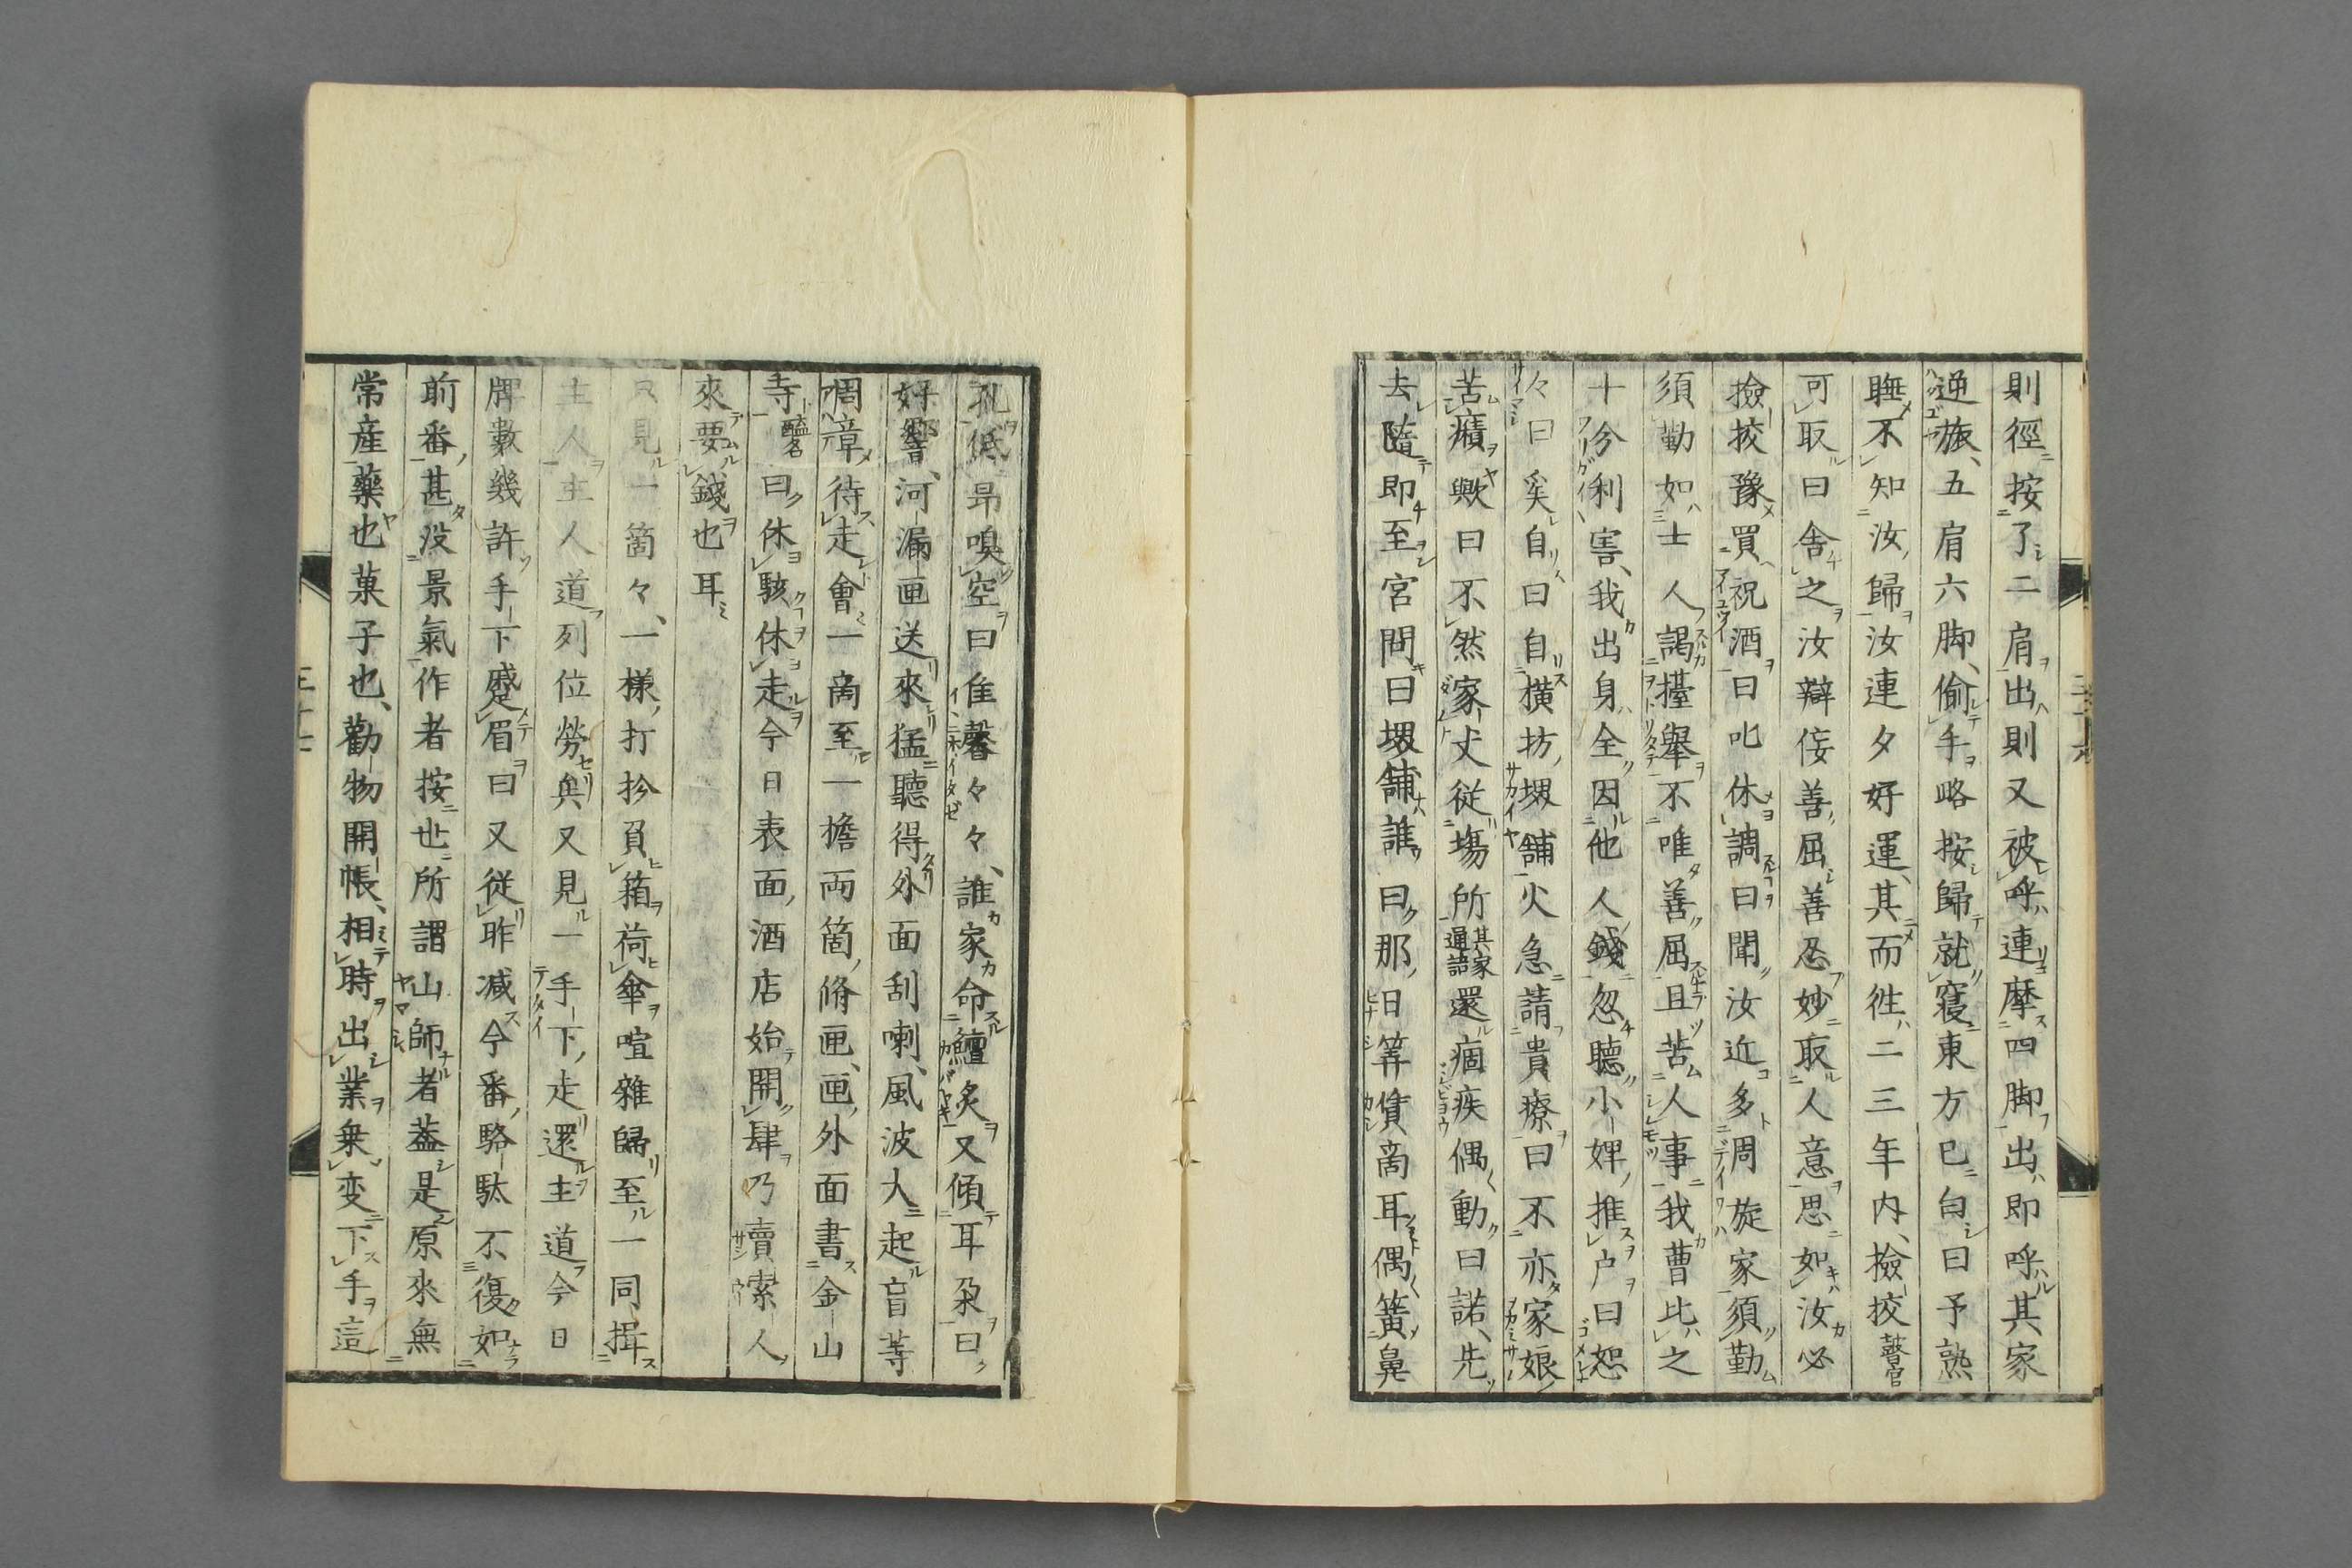 則徑按了二肩出則又被呼連摩四脚出即呼其家
逆旅、五肩六脚、偷手略按歸就寢東方已白曰予熟
聯不知汝歸汝連夕好運、其而徃二三年内、撿挍瞽官
可取曰舍之汝辯侫善屈善忍妙取人意思如汝必
撿挍豫買祝酒曰叱休調曰聞汝近多周旋家須勤
須勤如士人謁擡舉不唯善屈且苦人事我曹比之
十分利害、我出身全因他人錢忽聽小婢推戸曰恕
々曰奚自曰自横坊堺舖火急請貴療曰不亦家娘
苦癪歟曰不然家丈従塲所其家通語還痼疾偶動曰諾、先
去隨即至宮間曰堺舖誰曰那日筭債啇耳偶簧鼻
孔低昂嗅空曰隹馨々々、誰家命鱣炙又傾耳朶曰
好響、河漏匣送來猛聽得外面刮喇、風波大起盲等
惆𢠵待走會一啇至一擔両箇脩匣、匣外面書金山
寺醯名曰休駭休走今日表面酒店始開肆乃賣索人
來要錢也耳
只見一箇々、一様打扮負箱荷傘喧雜歸至一同揖
主人主人道列位勞矣又見一手下走還主道今日
牌數幾許手下蹙眉曰又従昨減今番駱駄不復如
前番甚没景氣作者按也所謂山師者葢是原來無
常産藥也菓子也、勸物開帳、相時出業乗変下手這